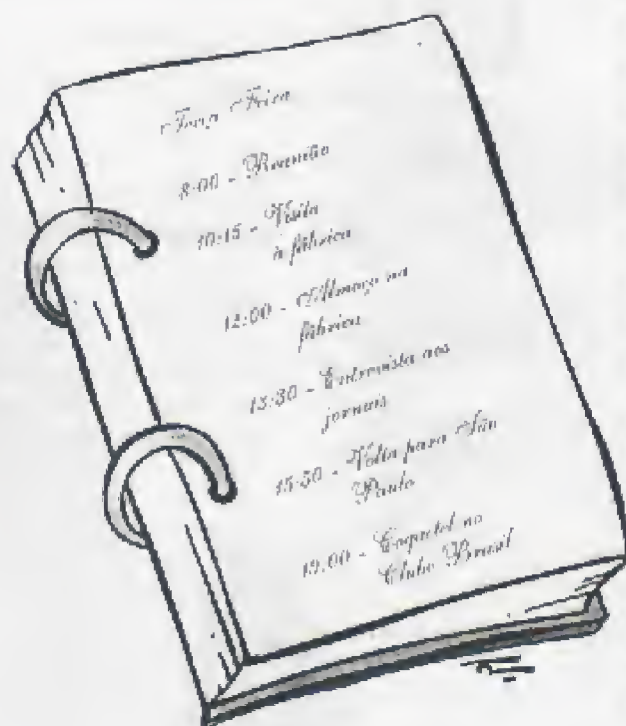 Terça Feira
8:00 - Reunião
10:15 - Visita
à fábrica
12:00 - Almoço na
fábrica
13:30 - Entrevista aos
jornais
15:30 - Volta para São
Paulo
19:00 - Coquetel no
Clube Brasil